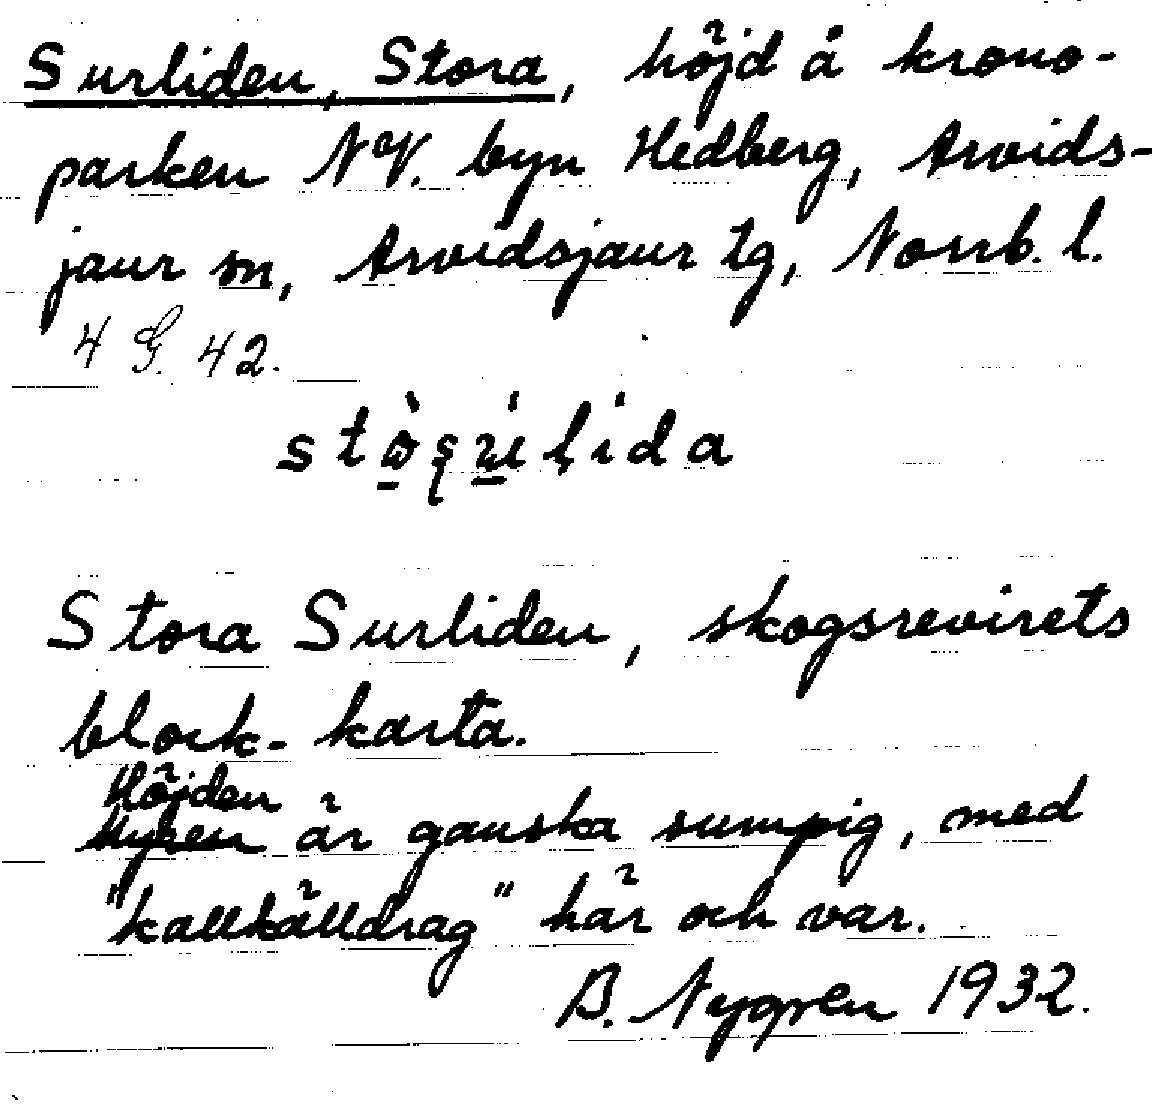 Surliden, Stora, höjd å krono-
parken NV. byn Hedberg, Arvids-
jaur sn, Arvidsjaur tg, Norrb. l.
4 G. 42.
Stora Surliden, skogsrevirets
block-karta.
Höjden
Myren är ganska sumpig, med
"kallkälldrag" här och var.
B. Nygren 1932.